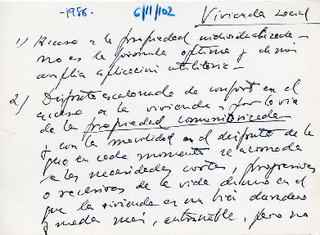 -1988- 6/11/102 Vivienda Social
1) Acceso a la propiedad individualizada -
no es la fórmula óptima y de más
amplia aplicación utilitaria -
2) Disfrute escalonado de confort en el
acceso a la vivienda y por la vía
de la propiedad comunitarizada
y con la movilidad en el disfrute de la
que en cada momento se acomoda
a las necesidades cortas, progresivas
o recesivas de la vida
que la vivienda es un bien duradero
y nada más, entrañable, pero no